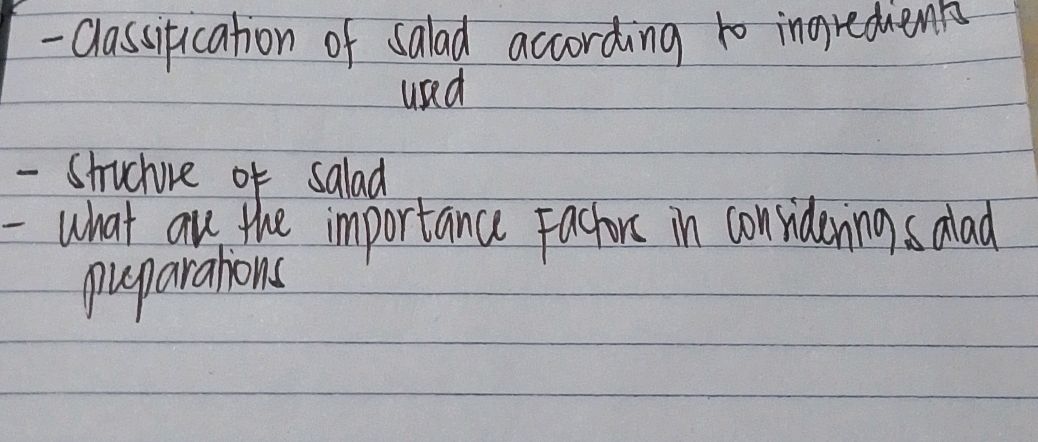 - Classification of salad according to ingredients
used
- Structure of salad
- What are the importance Factors in considering salad
preparations